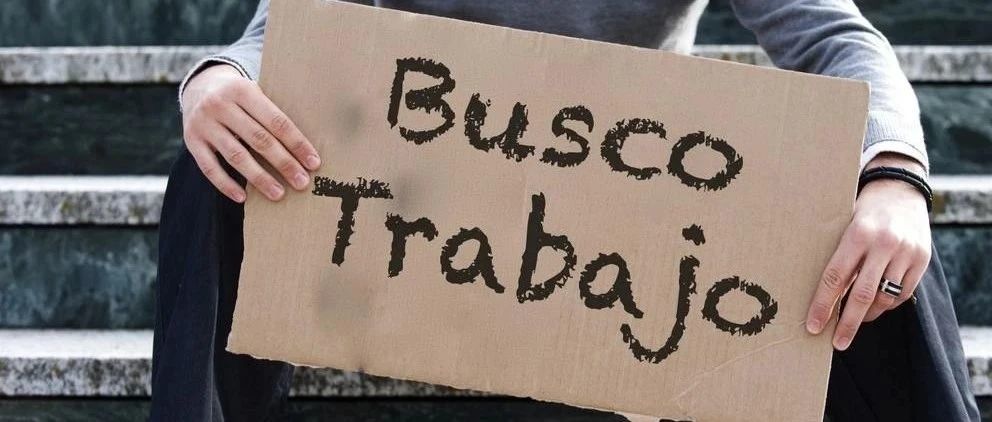 Busco
Trabajo